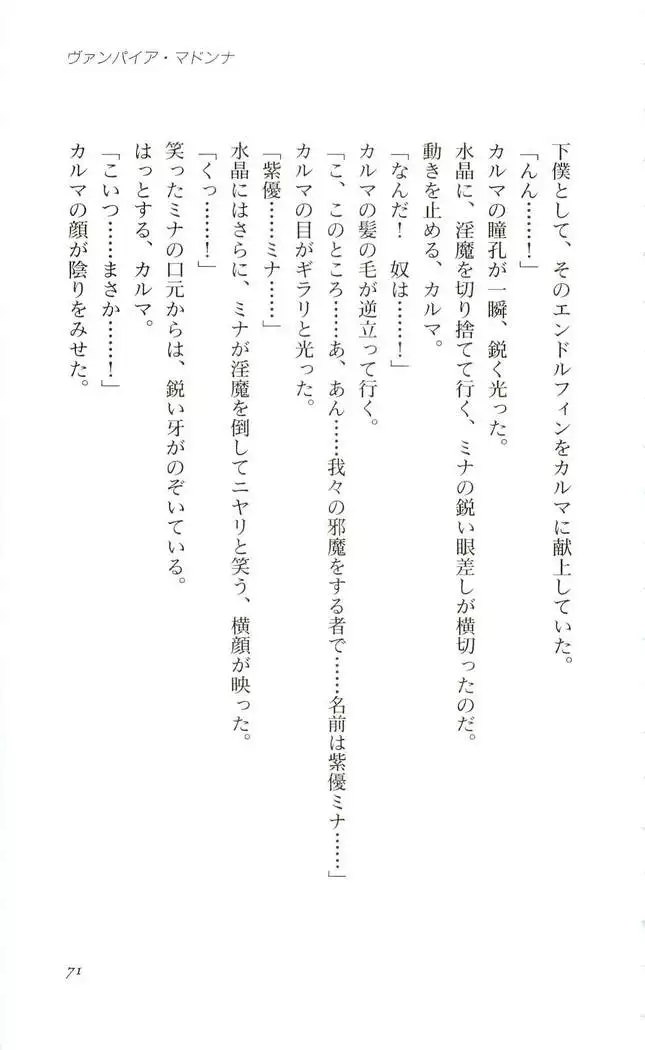 ヴァンパイア・マドンナ
下僕として、そのエンドルフィンをカルマに献上していた。
「んん……！」
カルマの瞳孔が一瞬、鋭く光った。
水晶に、淫魔を切り捨てて行く、ミナの鋭い眼差しが横切ったのだ。
動きを止める、カルマ。
「なんだ！　奴は……！」
カルマの髪の毛が逆立って行く。
「こ、このところ……あ、あん……我々の邪魔をする者で……名前は紫優ミナ……」
カルマの目がギラリと光った。
「紫優……ミナ……」
水晶にはさらに、ミナが淫魔を倒してニヤリと笑う、横顔が映った。
「くっ……！」
笑ったミナの口元からは、鋭い牙がのぞいている。
はっとする、カルマ。
「こいつ……まさか……！」
カルマの顔が陰りをみせた。
71